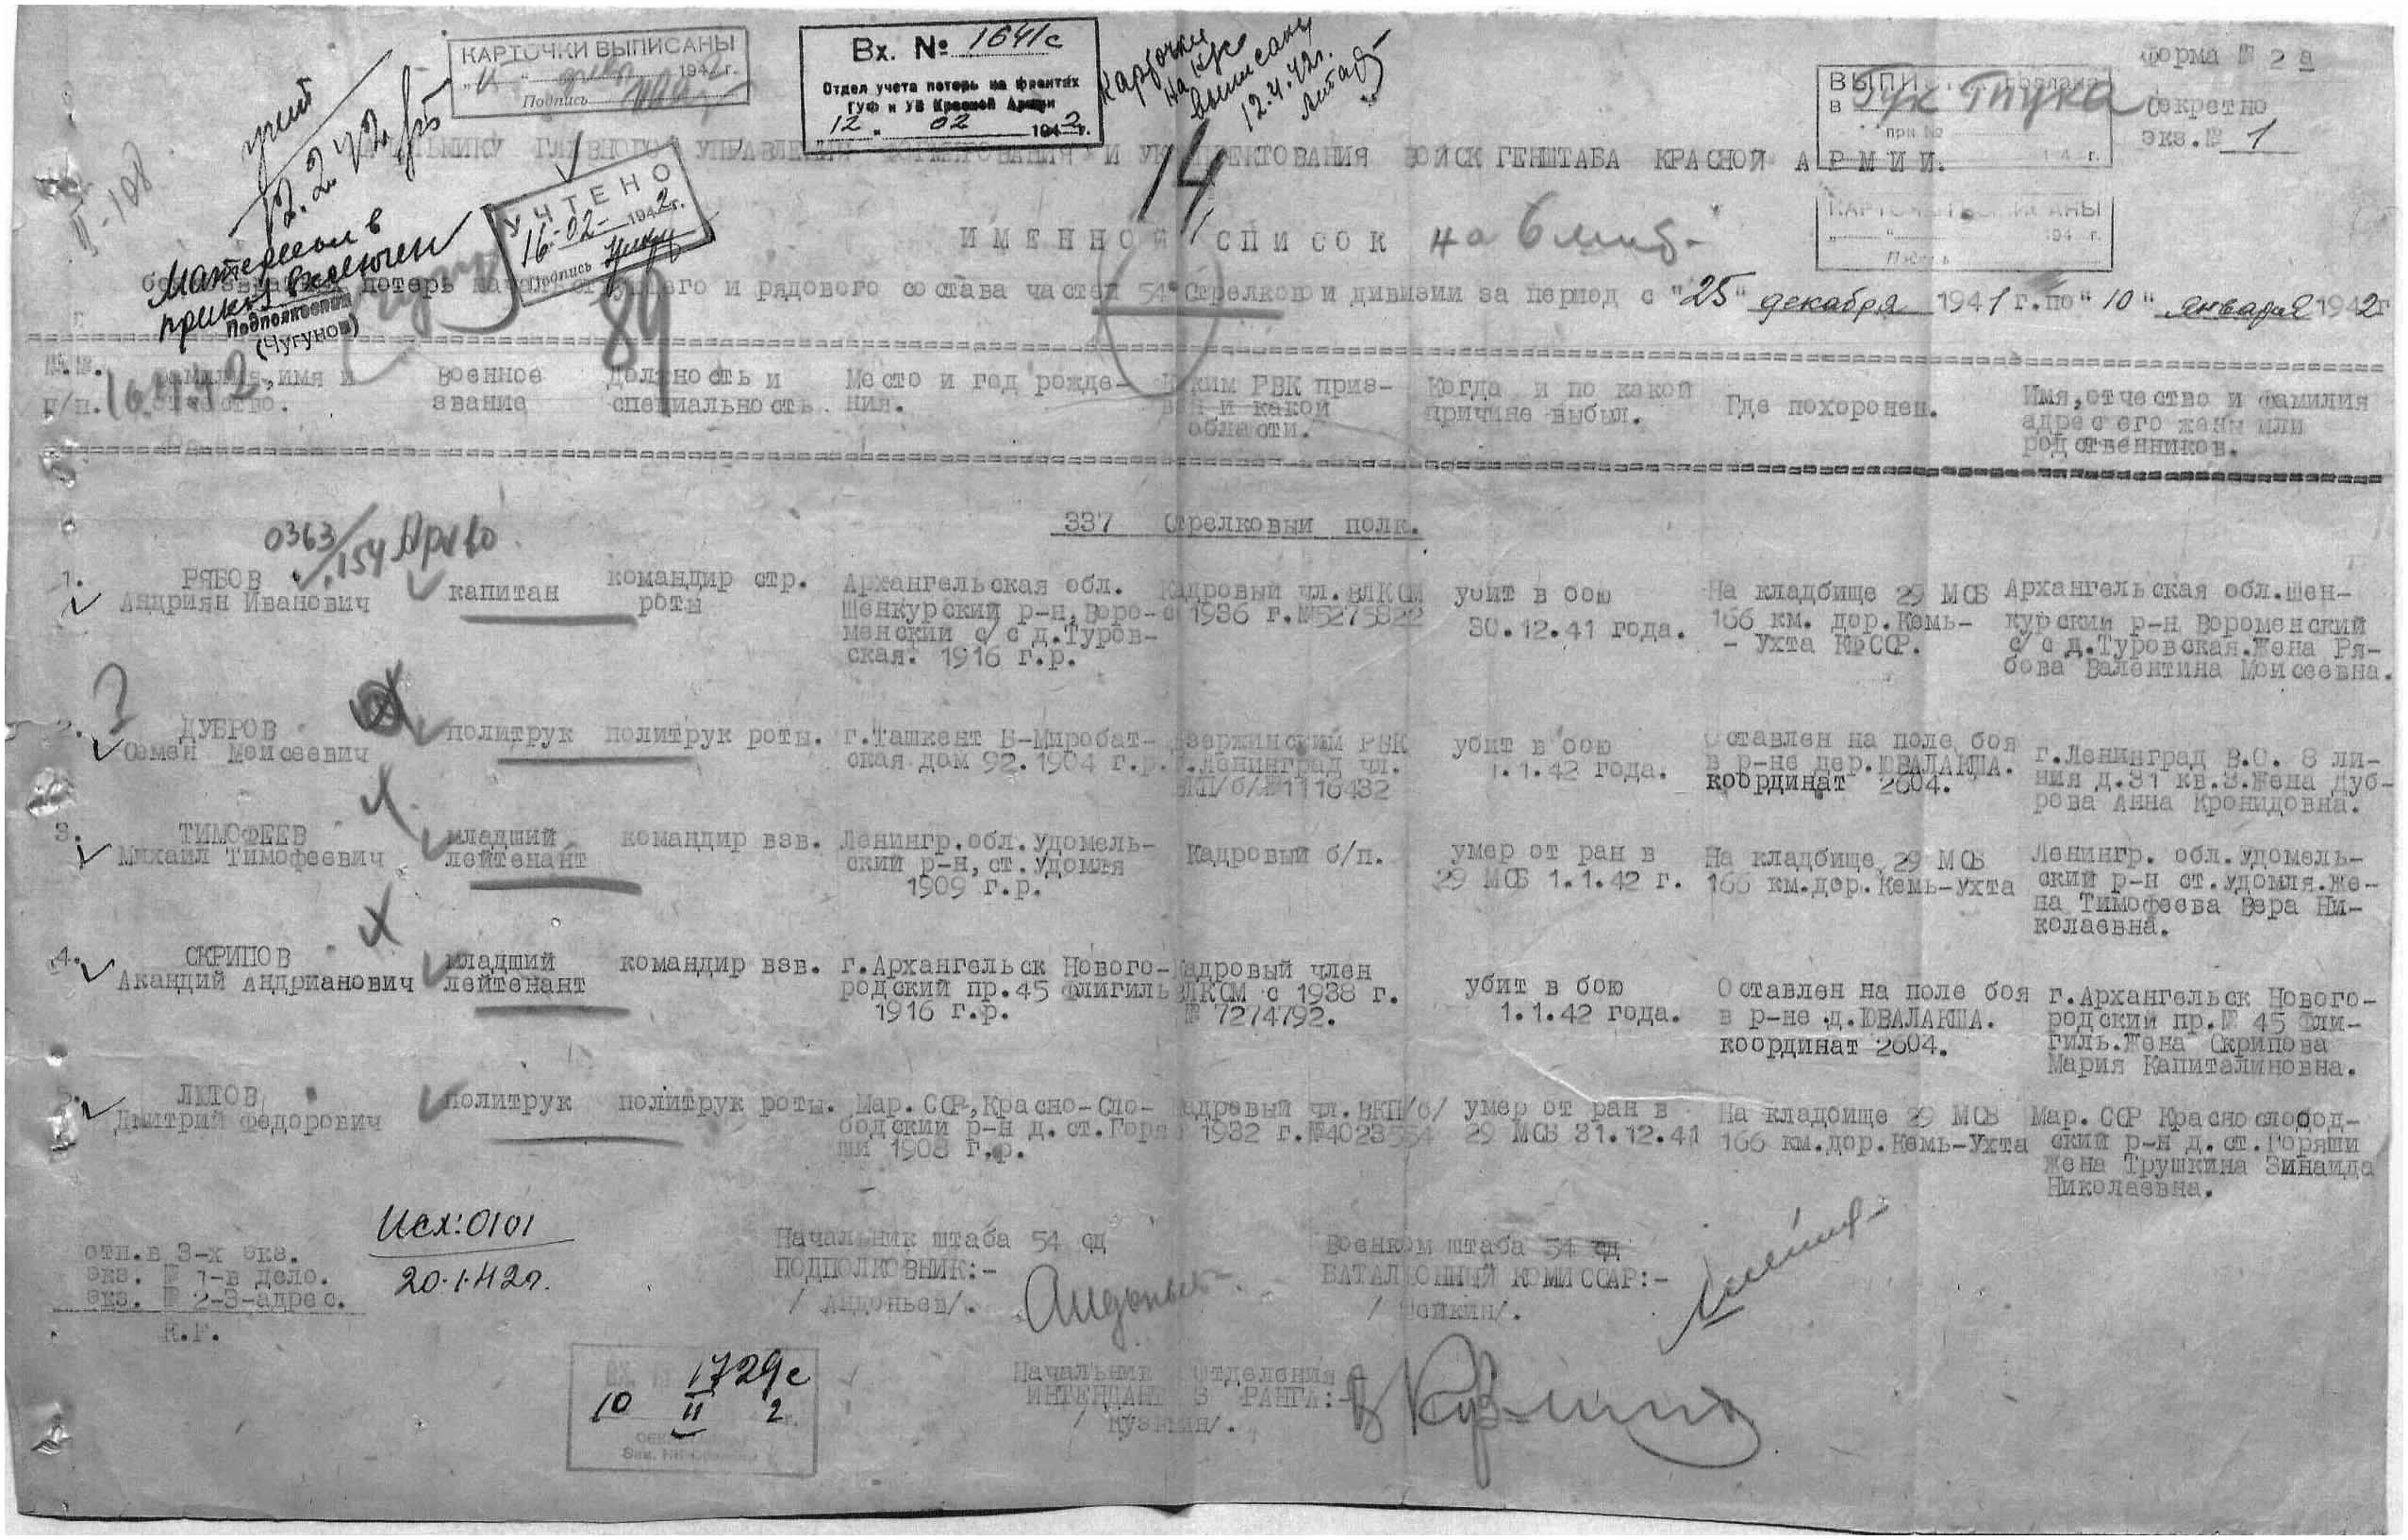 КАРТОЧКИ ВЫПИСАНЫ
194 г.
Подпись
Вх. № 1641с
Отдел учета потерь на фронтах
ГУФ и УВ Красной Армии
12 " 02 1942г.
Карточки
на
выписаны
12.4.42г.
Форма № 2 а
Секретно
экз.№ 1
ВЫПИ
в
при №
194 г.
КАРТОЧКИ ВЫПИСАНЫ
194 г.
Подпись
12.2.42
II-108
НАЧАЛЬНИКУ ГЛАВНОГО УПРАВЛЕНИЯ ФОРМИРОВАНИЯ И УКОМПЛЕКТОВАНИЯ ВОЙСК ГЕНШТАБА КРАСНОЙ АРМИИ.
14
УЧТЕНО
16-02- 1942г.
Подпись
Материал в
приказ включен
Подполковник
(Чугунов)
89
ИМЕННОЙ СПИСОК на 6
безвозвратных потерь начальствующего и рядового состава частей 54 Стрелковой дивизии за период с "25" декабря 1941 г. по "10" января 1942г
№.№. п/п. фамилия,имя и отчество. Военное звание Должность и специальность. Место и год рожде-ния. Каким РВК приз-ван и какой области. Когда и по какой причине выбыл. Где похоронен. Имя,отчество и фамилия адрес его жены или родственников.
337 Стрелковый полк.
0363/154
1. РЯБОВ капитан командир стр. Архангельская обл. Кадровый чл.ВЛКСМ убит в бою На кладбище 29 МСБ Архангельская обл.Шен-
Андриян Иванович роты Шенкурский р-н,Воро- с 1936 г.№5275822 30.12.41 года. 166 км. дор.Кемь- курский р-н Вороменский
менский с/с д.Туров- - Ухта КФССР. с/с д.Туровская.Жена Ря-
ская. 1916 г.р. бова Валентина Моисеевна.
2. ДУБРОВ политрук политрук роты. г.Ташкент В-Миробат- Дзержинский РВК убит в бою Оставлен на поле боя г.Ленинград В.О. 8 ли-
Семен Моисеевич ская дом 92. 1904 г.р. г.Ленинград чл. 1.1.42 года. в р-не дер.ЮВАЛАКША. ния д.31 кв.3.Жена Дуб-
ВКП/б/№1116432 координат 2604. рова Анна Кронидовна.
3. ТИМОФЕЕВ младший командир взв. Ленингр.обл.Удомель- Кадровый б/п. умер от ран в На кладбище 29 МСБ Ленингр. обл.Удомель-
Михаил Тимофеевич лейтенант ский р-н,ст.Удомля 29 МСБ 1.1.42 г. 166 км.дор.Кемь-Ухта ский р-н ст.Удомля.Же-
1909 г.р. на Тимофеева Вера Ни-
колаевна.
4. СКРИПОВ младший командир взв. г.Архангельск Нового- Кадровый член убит в бою Оставлен на поле боя г.Архангельск Нового-
Акандий Андрианович лейтенант родский пр.45 флигиль ВЛКСМ с 1938 г. 1.1.42 года. в р-не д.ЮВАЛАКША. родский пр.№ 45 фли-
1916 г.р. № 7274792. координат 2604. гиль.Жена Скрипова
Мария Капиталиновна.
5. ЛЕТОВ политрук политрук роты. Мар.ССР,Красно-Сло- Кадровый чл.ВКП/б/ умер от ран в На кладбище 29 МСБ Мар.ССР Краснослобод-
Дмитрий Федорович бодский р-н д.ст.Горя с 1932 г.№4023554 29 МСБ 31.12.41 166 км.дор.Кемь-Ухта ский р-н д.ст.Горяши
ши 1908 г.р. жена Трушкина Зинаида
Николаевна.
отп.в 3-х экз.
экз. № 1-в дело.
экз. № 2-3-адрес.
К.Г.
Исх:0101
20.1.42г.
Начальник штаба 54 сд
ПОДПОЛКОВНИК:-
/ Андоньев/.
Военком штаба 54 сд
БАТАЛЬОННЫЙ КОМИССАР:-
Начальник отделения
ИНТЕНДАНТ 3 РАНГА:-
/ Кузьмин/.
1729с
10 II 2 г.